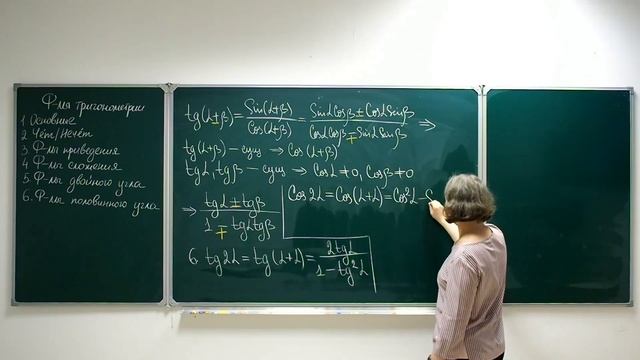 Ф-мя тригонометрии
1 Основные
2 Чёт/Нечёт
3 Ф-мы приведения
4 Ф-мы сложения
5. Ф-мы двойного угла
6. Ф-мы половинного угла
tg(α±β) = Sin(α±β)/Cos(α±β) = Sinα Cosβ ± Cosα Sinβ / Cosα Cosβ ∓ Sinα Sinβ ⇒
tg(α±β) – сущ → Cos(α±β)
tgα, tgβ – сущ → Cosα ≠ 0, Cosβ ≠ 0
Cos2α = Cos(α+α) = Cos²α – C
⇒ tgα ± tgβ / 1 ∓ tgα tgβ
6 tg2α = tg(α+α) = 2tgα / 1 – tg²α